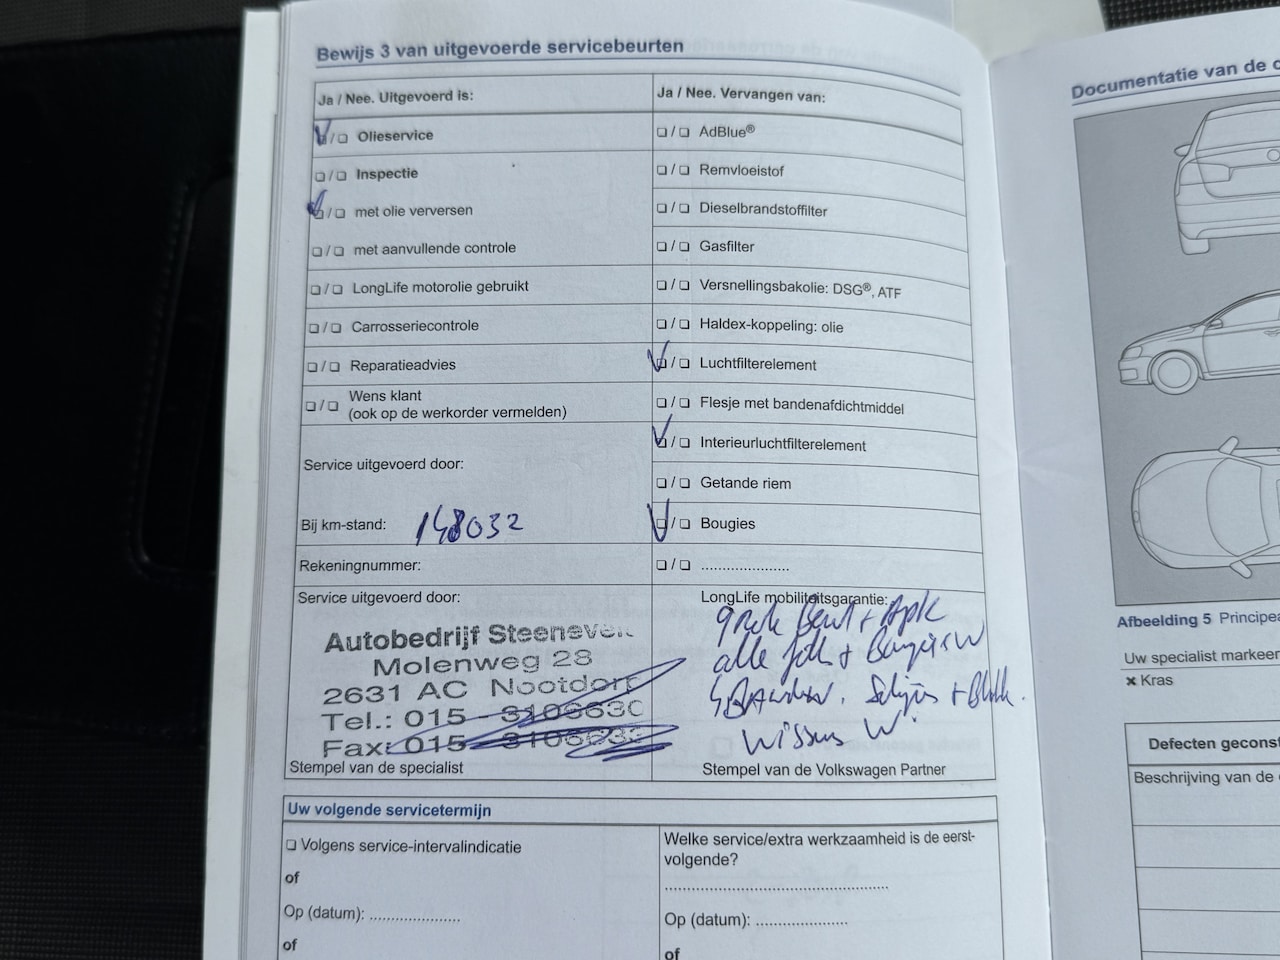 Bewijs 3 van uitgevoerde servicebeurten
Ja / Nee. Uitgevoerd is:
❏/❏ Olieservice
❏/❏ Inspectie
❏/❏ met olie verversen
❏/❏ met aanvullende controle
❏/❏ LongLife motorolie gebruikt
❏/❏ Carrosseriecontrole
❏/❏ Reparatieadvies
❏/❏ Wens klant
(ook op de werkorder vermelden)
Service uitgevoerd door:
Bij km-stand: 148032
Rekeningnummer:
Service uitgevoerd door:
Autobedrijf
Molenweg 28
2631 AC Nootdorp
Tel.: 015 -
Fax: 015
Stempel van de specialist
Ja / Nee. Vervangen van:
❏/❏ AdBlue®
❏/❏ Remvloeistof
❏/❏ Dieselbrandstoffilter
❏/❏ Gasfilter
❏/❏ Versnellingsbakolie: DSG®, ATF
❏/❏ Haldex-koppeling: olie
❏/❏ Luchtfilterelement
❏/❏ Flesje met bandenafdichtmiddel
❏/❏ Interieurluchtfilterelement
❏/❏ Getande riem
❏/❏ Bougies
❏/❏ .....................
LongLife mobiliteitsgarantie:
Beurt + Apk
alle +
wissers
Stempel van de Volkswagen Partner
Uw volgende servicetermijn
❏ Volgens service-intervalindicatie
of
Op (datum): .....................
of
Welke service/extra werkzaamheid is de eerst-
volgende?
.....................................................
Op (datum): .....................
of
Documentatie van de
Afbeelding 5
Uw specialist
✖ Kras
Defecten
Beschrijving van de